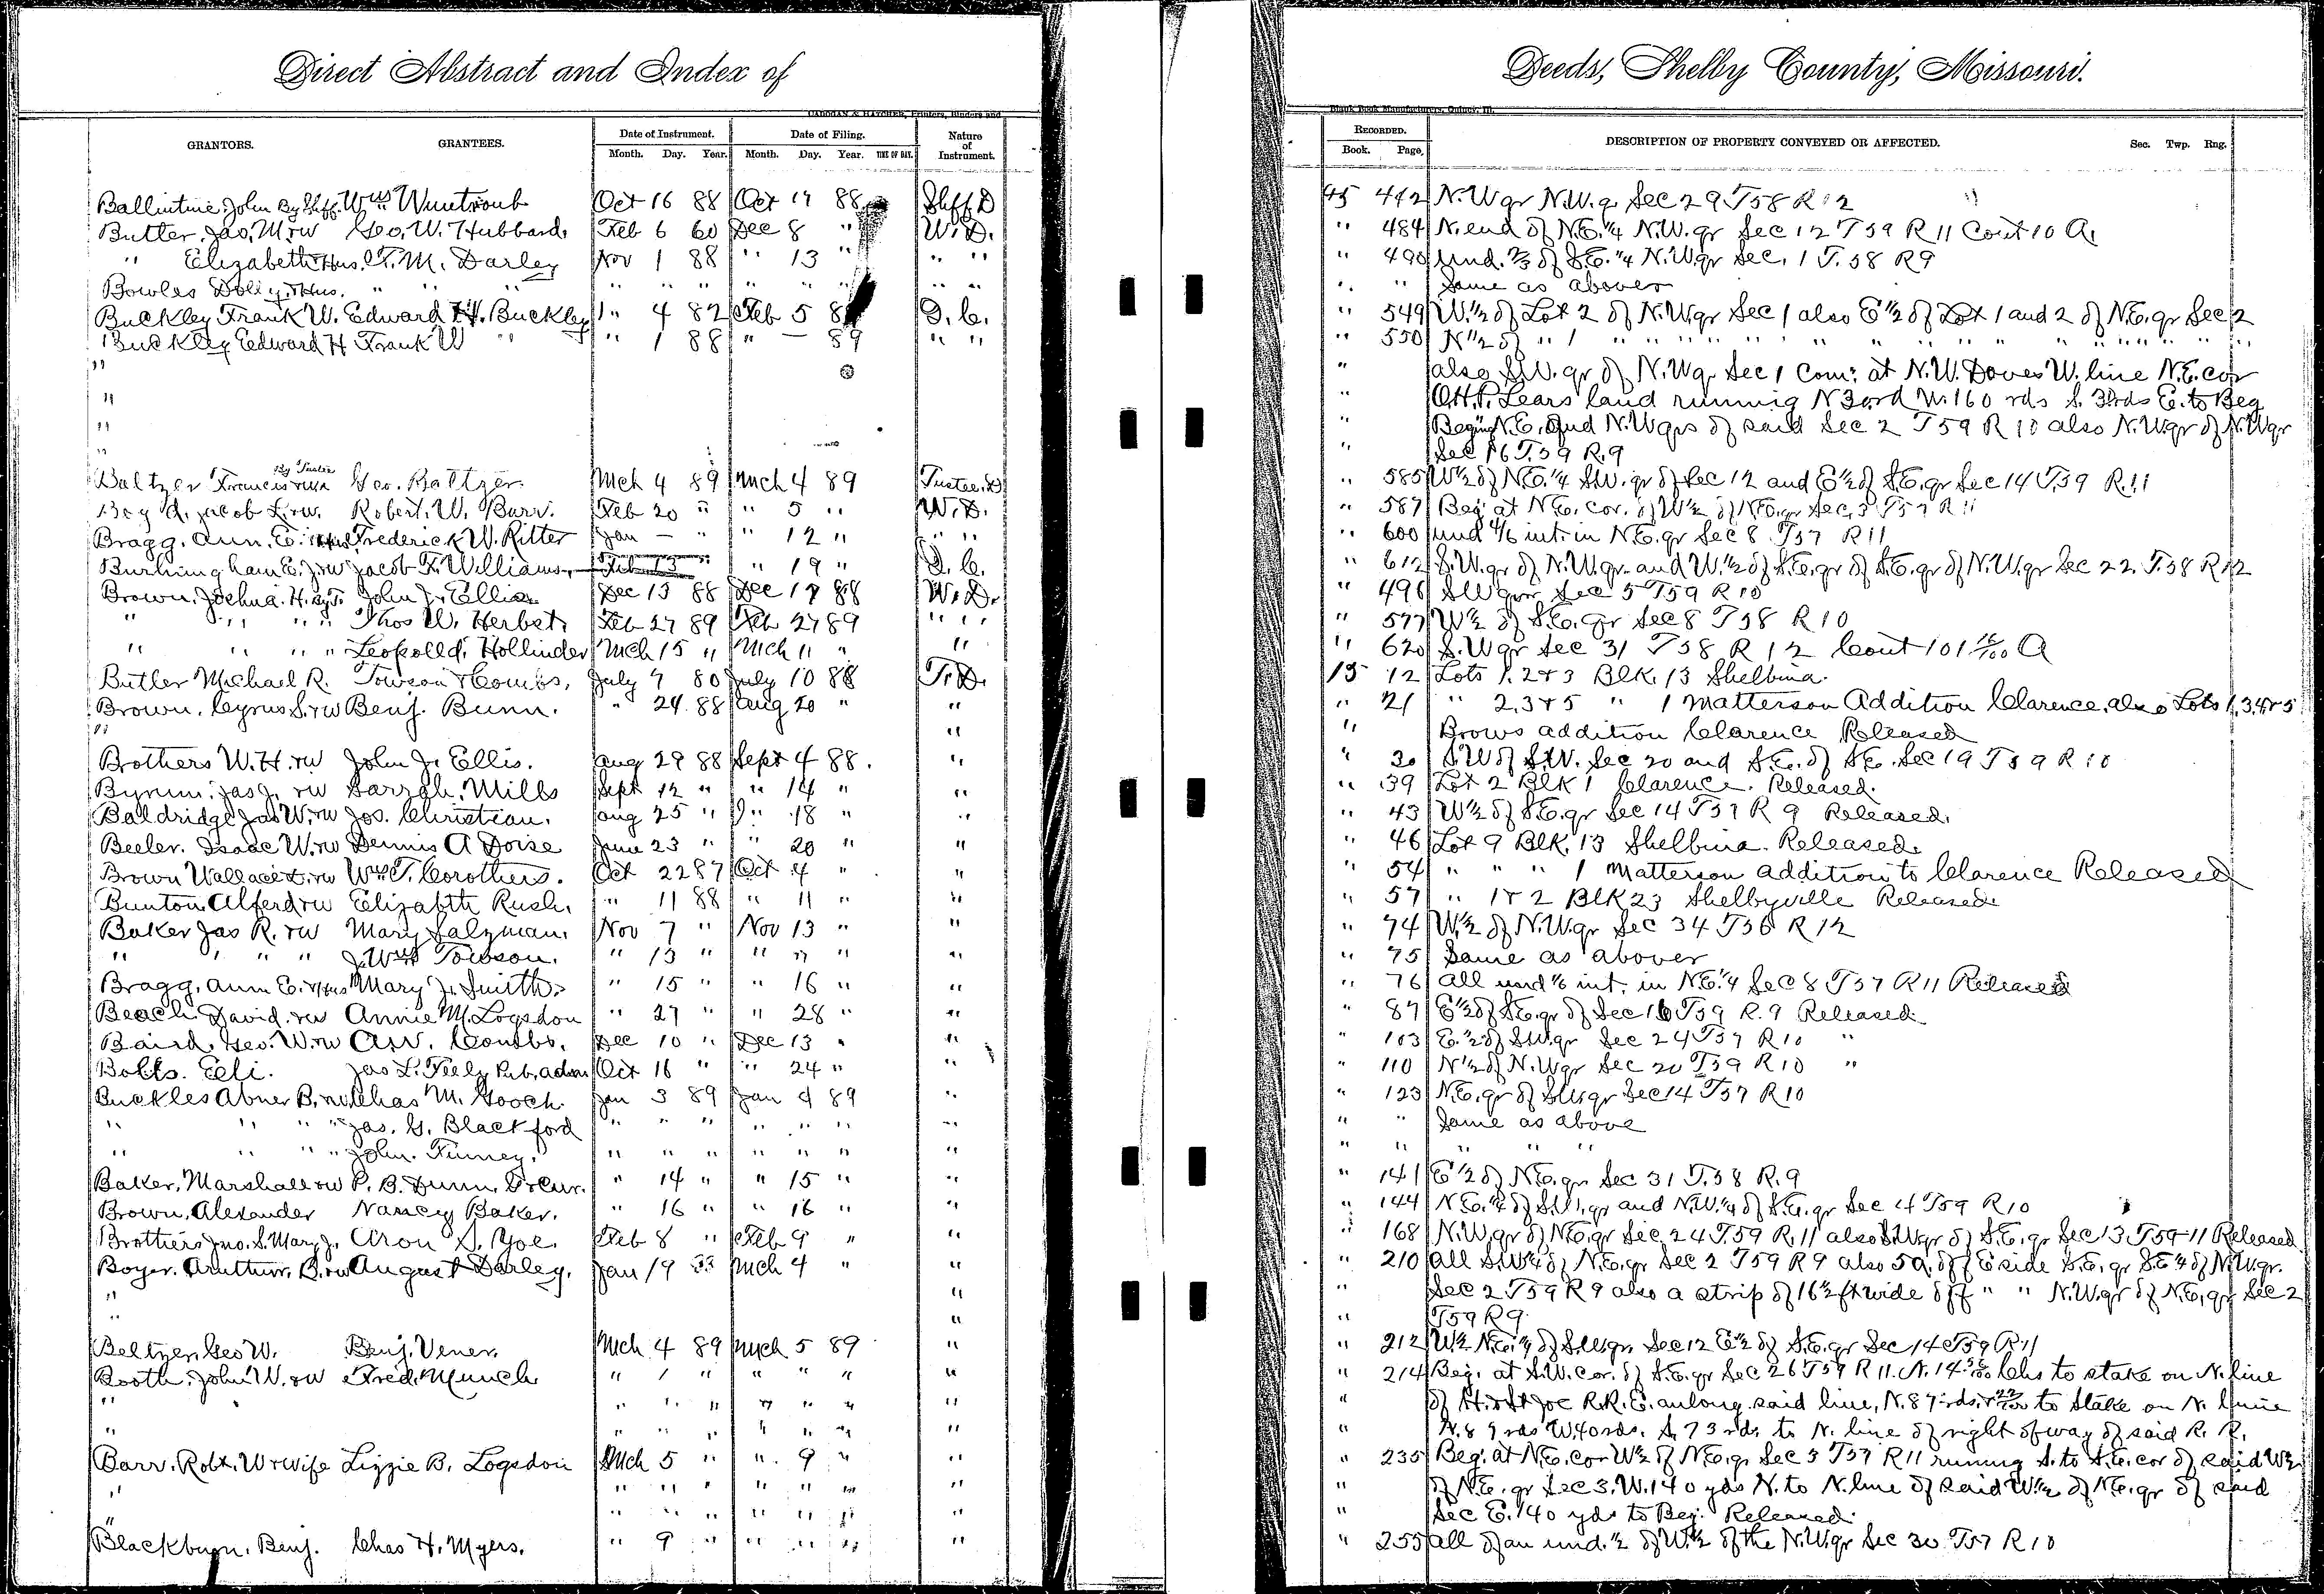 Direct Abstract and Index of Deeds, Shelby County, Missouri.
CADOGAN & HATCHER, Printers, Binders and Blank Book Manufacturers, Quincy, Ill.
GRANTORS. GRANTEES. Date of Instrument. Date of Filing. Nature of Instrument. RECORDED. DESCRIPTION OF PROPERTY CONVEYED OR AFFECTED. Sec. Twp. Rng.
Month. Day. Year. Month. Day. Year. TIME OF DAY. Book. Page.
Ballintine, John By Shff. Wm Wuntroub Oct 16 88 Oct 17 88 Shff D 45 442 N.W qr N.W.q Sec 29 T58 R12
Butler, Jas. M. &w Geo. W. Hubbard. Feb 6 60 Dec 8 " W.D. " 484 N. end of N.E.1/4 N.W. qr Sec 12 T59 R11 Cont 10 A.
" Elizabeth & Hus. T. M. Darley Nov 1 88 " 13 " " " " 490 Und. 2/3 of S.E. 1/4 N.W. qr Sec. 1 T.58 R9
Bowles Dolly, & Hus. " " " " " " " " " " " " " Same as above
Buckley Frank W. Edward H. Buckley " 4 82 Feb 5 89 Q.C. " 549 W.1/2 of Lot 2 of N.W. qr Sec 1 also E 1/2 of Lot 1 and 2 of N.E. qr Sec 2
Buckley Eedward H Frank W " " 1 88 " — 89 " " " 550 N 1/2 of " 1 " " " " " " " " " " " "
" " also S.W. qr of N.W q. Sec 1 Com: at N.W. Doves W. line N.E. cor
" " O.H.P. Lears land runnig N 3 ord W. 160 rds S. 3 rds E. to Beg
" " Beging N.E. and N.W qrs of said Sec 2 T59 R10 also N.W. qr of N.W qr
" " Sec 16 T.59 R.9
Baltzer Francis By Trustee Geo. Baltzer. Mch 4 89 Mch 4 89 Trustee. D " 585 W 1/2 of N.E. 1/4 S.W. qr of Sec 12 and E 1/2 of S.E. qr Sec 14 T.59 R.11
Jacob L. &w. Robert. W. Barr. Feb 20 " " 5 " W.D. " 587 Beg at N.E. cor. of W 1/2 of N.E. qr Sec. 3 T57 R11
Bragg. Ann. E. & Hus Frederick W. Ritter Jan — " " 12 " " " " 600 und 1/6 int. in N.E. qr Sec 8 T57 R11
Burhingham E. J. &w Jacob F. Williams. Feb 13 " " 19 " Q.C. " 612 S.W. qr of N.W. qr. and W. 1/2 of S.E. qr of S.E. qr of N.W. qr Sec 22 T.58 R12
Brown, Joshua. H. By T. John J. Ellis Dec 13 88 Dec 17 88 W.D. " 496 SW qr Sec 5 T59 R10
" " " " Thos W. Herbst. Feb 27 89 Feb 27 89 " " " 577 W 1/2 of S.E. qr Sec 8 T58 R10
" " " " Leopolld. Hollinder Mch 15 " Mch 11 " " " 620 S.W qr Sec 31 T58 R12 Cont 101 16/100 A
Butler Michael R. Towson & Combs. July 7 80 July 10 88 T.D. 15 12 Lots 1. 2 & 3 Blk. 13 Shelbina.
Brown. Cyrus S. &w Benj. Bunn. " 24. 88 Aug 20 " " " 21 " 2. 3 & 5 " 1 Matterson Addition Clarence, also Lots 1, 3, 4 & 5
" " " Brows addition Clarence Released
Brothers W.H. &w John J. Ellis. Aug 29 88 Sept 4 88. " " 30 S.W of S.W. Sec 20 and S.E. of S.E. Sec 19 T59 R10
Bynum. Jas J. &w Sarrah. Mills Sept 12 " " 14 " " " 39 Lot 2 Blk 1 Clarence. Released.
Baldridge Jas W. &w Jos. Christian. Aug 25 " " 18 " " " 43 W 1/2 of S.E. qr Sec 14 T57 R 9 Released.
Beeler. Isaac W. &w Dennis A Doise June 23 " " 20 " " " 46 Lot 9 Blk. 13 Shelbina. Released.
Brown Wallace &w Wm T. Corothers. Oct 22 87 Oct 4 " " " 54 " " " 1 Matterson addition to Clarence Released
Bunton Alferd &w Elizabth Rush. " 11 88 " 11 " " " 57 " 1 & 2 BLK 23 Shelbyville Released
Baker Jas R. &w Mary Salzman. Nov 7 " Nov 13 " " " 74 W. 1/2 of N.W. qr Sec 34 T56 R12
" " " " J. Wm Towson. " 13 " " " " " " 75 Same as above
Bragg, Ann E. & Hus Mary J. Smith. " 15 " " 16 " " " 76 All und 1/6 int. in N.E. 1/4 Sec 8 T57 R11 Released
Beach. David. &w Annie M. Logsdon " 27 " " 28 " " " 87 E 1/2 of S.E. qr of Sec 16 T59 R.9 Released.
Baird. Geo. W. &w A.W. Combs. Dec 10 " Dec 13 " " " 103 E. 1/2 of S.W. qr Sec 24 T57 R10 "
Botts. Eli. Jas L. Feely Pub. Adm Oct 16 " " 24 " " " 110 N 1/2 of N.W qr Sec 20 T59 R10 "
Buckles Abner B. &w Chas M. Gooch. Jan 3 89 Jan 4 89 " " 123 N.E. qr of S.W. qr Sec 14 T57 R10
" " " " Jas. G. Blackford " " " " " " " " " Same as above
" " " " John. Finney. " " " " " " " " " " " "
Baker, Marshall &w P. B. Dunn, Trcur. " 14 " " 15 " " " 141 E 1/2 of N.E. qr Sec 31 T.58 R.9
Brown, Alexander Nancy Baker. " 16 " " 16 " " " 144 N.E. 1/4 of S.W. qr and N.W. 1/4 of S.E. qr Sec 4 T59 R10
Brothers Jno. S. Mary J. Aron S. Yoe. Feb 8 " Feb 9 " " " 168 N.W. qr of N.E. qr Sec 24 T.59 R.11 also S.W qr of S.E. qr Sec 13 T59-11 Released
Boyer. Aruthur. B. &w August Darley. Jan 19 Mch 4 " " " 210 All S.W 1/4 of N.E. qr Sec 2 T59 R9 also 5 a. off E side S.E. qr S.E 1/4 of N.W. qr.
" " Sec 2 T59 R9 also a strip of 16 1/2 ft wide off " " N.W. qr of N.E. qr Sec 2
" " " T59 R9
Beltzer, Geo W. Benj. Vener. Mch 4 89 Mch 5 89 " " 212 W 1/2 N.E. 1/4 of S.W. qr. Sec 12 E 1/2 of S.E. qr Sec 14 T59 R11
Booth. John W. &w Fred. Munch " 1 " " " " " " 214 Beg. at S.W. cor. of S.E. qr Sec 26 T59 R11. N. 14 chs to stake on N. line
" " " " " " " " " of H. & St Joe R.R. E. anlong said line, N. 87 rds. to Stake on N. line
" " " " " " " " " N. 87 rds W. 40 rds. S. 73 rds. to N. line of right of way of said R. R.
Barr. Robt. W & wife Lizzie B. Logsdon Mch 5 " " 9 " " " 235 Beg. at N.E. cor W 1/2 of N.E. qr Sec 3 T57 R11 runing S. to S.E. cor of said W 1/2
" " " " " " " " of N.E. qr Sec 3. W. 140 yds N. to N. line of said W 1/2 of N.E. qr of said
" " " " " " " " " Sec E. 140 yds to Beg. Released.
Blackburn. Benj. Chas H. Myers. " 9 " " " " " " 255 All of an und. 1/2 of W. 1/2 of the N.W. qr Sec 30 T57 R10